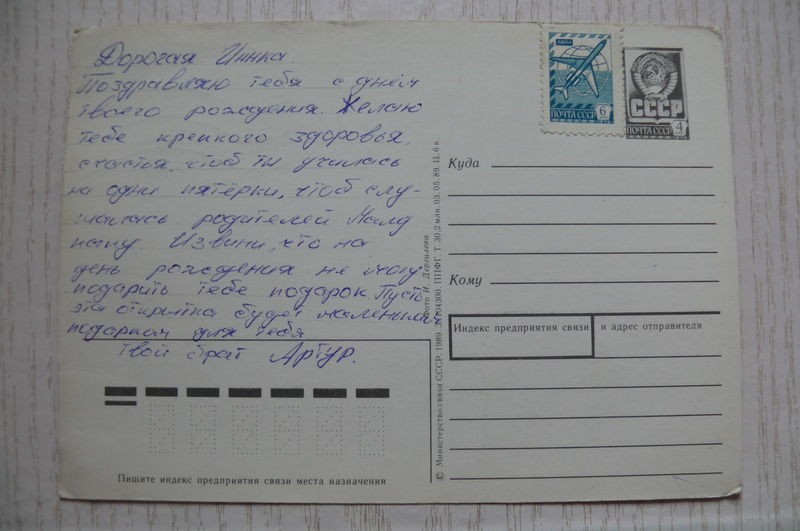 Дорогая Иннка.
Поздравляю тебя с днём
твоего рождения. Желаю
тебе крепкого здоровья,
счастья, чтоб ты училась
на одни пятёрки, чтоб слу-
шалась родителей Маму
папу. Извини, что на
день рождения не могу
подарить тебе подарок. Пусть
эта открытка будет маленьким
подарком для тебя
Твой брат Артур.
АВИА
6
ПОЧТА СССР
СССР
ПОЧТА СССР 4
Куда
Кому
Индекс предприятия связи и адрес отправителя
Пишите индекс предприятия связи места назначения
© Министерство связи СССР, 1989. ППФГ. Т. 30,2 млн. 03. 05. 89. Ц. 6 к.
Фото И. Дергилева